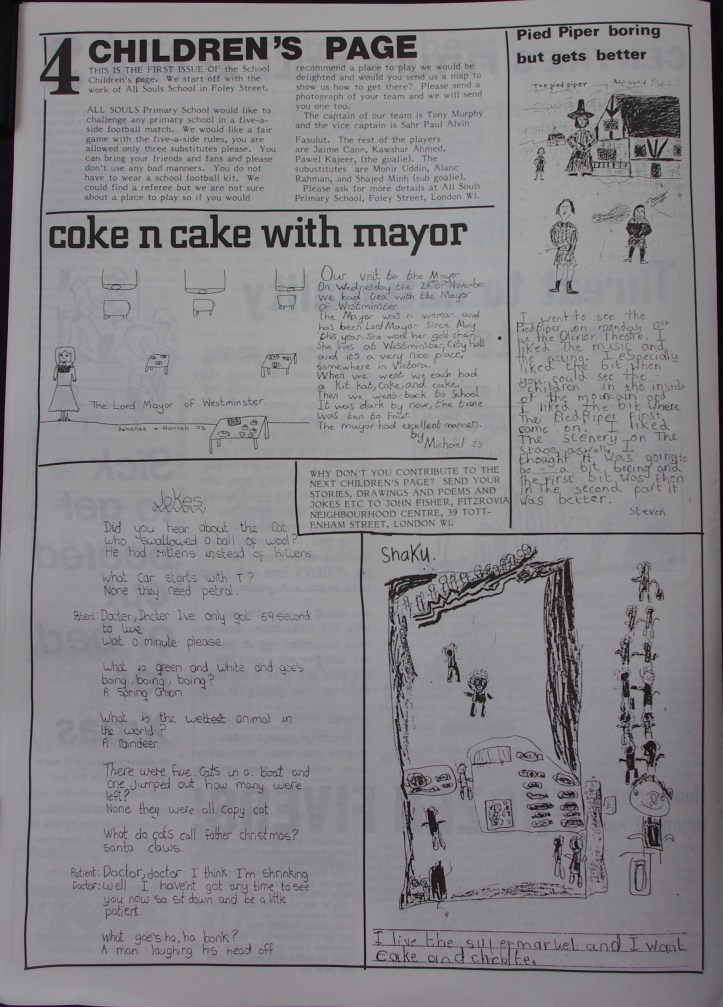 4 CHILDREN'S PAGE
THIS IS THE FIRST ISSUE of the School
Children's page. We start off with the
work of All Souls School in Foley Street.
ALL SOULS Primary School would like to
challenge any primary school in a five-a-
side football match. We would like a fair
game with the five-a-side rules, you are
allowed only three substitutes please. You
can bring your friends and fans and please
don't use any bad manners. You do not
have to wear a school football kit. We
could find a referee but we are not sure
about a place to play so if you would
recommend a place to play we would be
delighted and would you send us a map to
show us how to get there? Please send a
photograph of your team and we will send
you one too.
The captain of our team is Tony Murphy
and the vice captain is Sahr Paul Alvin
Fasulut. The rest of the players
are Jaime Cane, Kawshar Ahmed,
Pawel Kajeer, (the goalie). The
substitutes are Monir Uddin, Alanc
Rahman, and Shajed Minh (sub goalie).
Please ask for more details at All Souls
Primary School, Foley Street, London W1.
Pied Piper boring
but gets better
The pied piper
I went to see the
Pied Piper on monday
at the Olivier Theatre. I
liked the music and
the acting. I especially
liked the bit when
you could see the
children in the inside
of the mountain and
I liked the bit where
The Pied Piper first
came on. I liked
The scenery on The
stage aswell. I
thought it was going to
be a bit boring and
The first bit was then
in the second part it
was better.
Steven
coke n cake with mayor
The Lord Mayor of Westminster
Rehanaz + Hannah J3
Our visit to the Mayor
On Wednesday the 26th November
we had tea with the Mayor
of Westminster.
The Mayor was a woman and
has been Lord Mayor since May
this year. She wore her gold chain.
She lives at Westminster City hall
and it's a very nice place,
somewhere in Victoria.
When we went we each had
a kit kat, coke, and cake.
Then we went back to School
It was dark by now, the time
was ten to four.
The mayor had excellent manners.
by
Michael J3
WHY DON'T YOU CONTRIBUTE TO THE
NEXT CHILDREN'S PAGE? SEND YOUR
STORIES, DRAWINGS AND POEMS AND
JOKES ETC TO JOHN FISHER, FITZROVIA
NEIGHBOURHOOD CENTRE, 39 TOTT-
ENHAM STREET, LONDON W1.
Jokes
Did you hear about the Cat
who swallowed a ball of wool?
He had Mittens instead of kittens.
What Car starts with T?
None they need petrol.
Patient: Doctor, Docter I've only got 59 second
to live
Wait a minute please.
What is green and white and goe's
boing, boing, boing?
A Spring Onion.
What is the wettest animal in
the world?
A raindeer.
There were five cats in a boat and
one jumped out how many were
left?
None they were all copy cat.
What do cats call father christmas?
santa claws.
Patient: Doctor, doctor I think I'm shrinking
Doctor: well I haven't got any time to see
you now so sit down and be a little
patient.
What goe's ha, ha bonk?
A man laughing his head off.
Shaku.
I live the supermarket and I want
cake and chcolte.